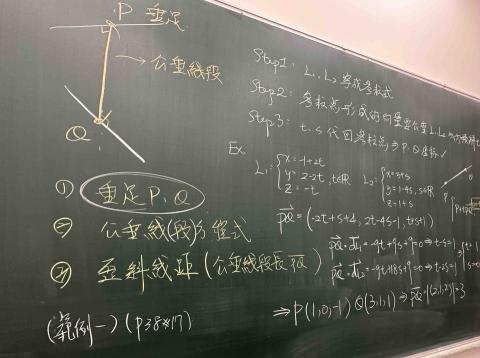 P 垂足
→ 公垂線段
Q
① 垂足 P、Q
② 公垂線(段)方程式
③ 歪斜線距 (公垂線段長 PQ)
(範例一) (P38#17)
Step1: L₁、L₂ 寫成參數式
Step2: 參數點形成的向量要公垂 L₁、L₂ ⇒ 內積
Step3: t、s 代回參數點 ⇒ P、Q 坐標
Ex
L₁: { x=-1+2t
y=2-2t, t∈R
z=-t
L₂: { x=3+s
y=1-4s, s∈R
z=1+s
PQ = (-2t+s+4, 2t-4s-1, t+s+1)
PQ·d₁ = -9t+9s+9=0 ⇒ t-s=1
PQ·d₂ = -9t+18s+9=0 ⇒ t-2s=1
t=1
s=0
⇒ P(1,0,-1) Q(3,1,1) ⇒ PQ=|(2,1,2)|=3